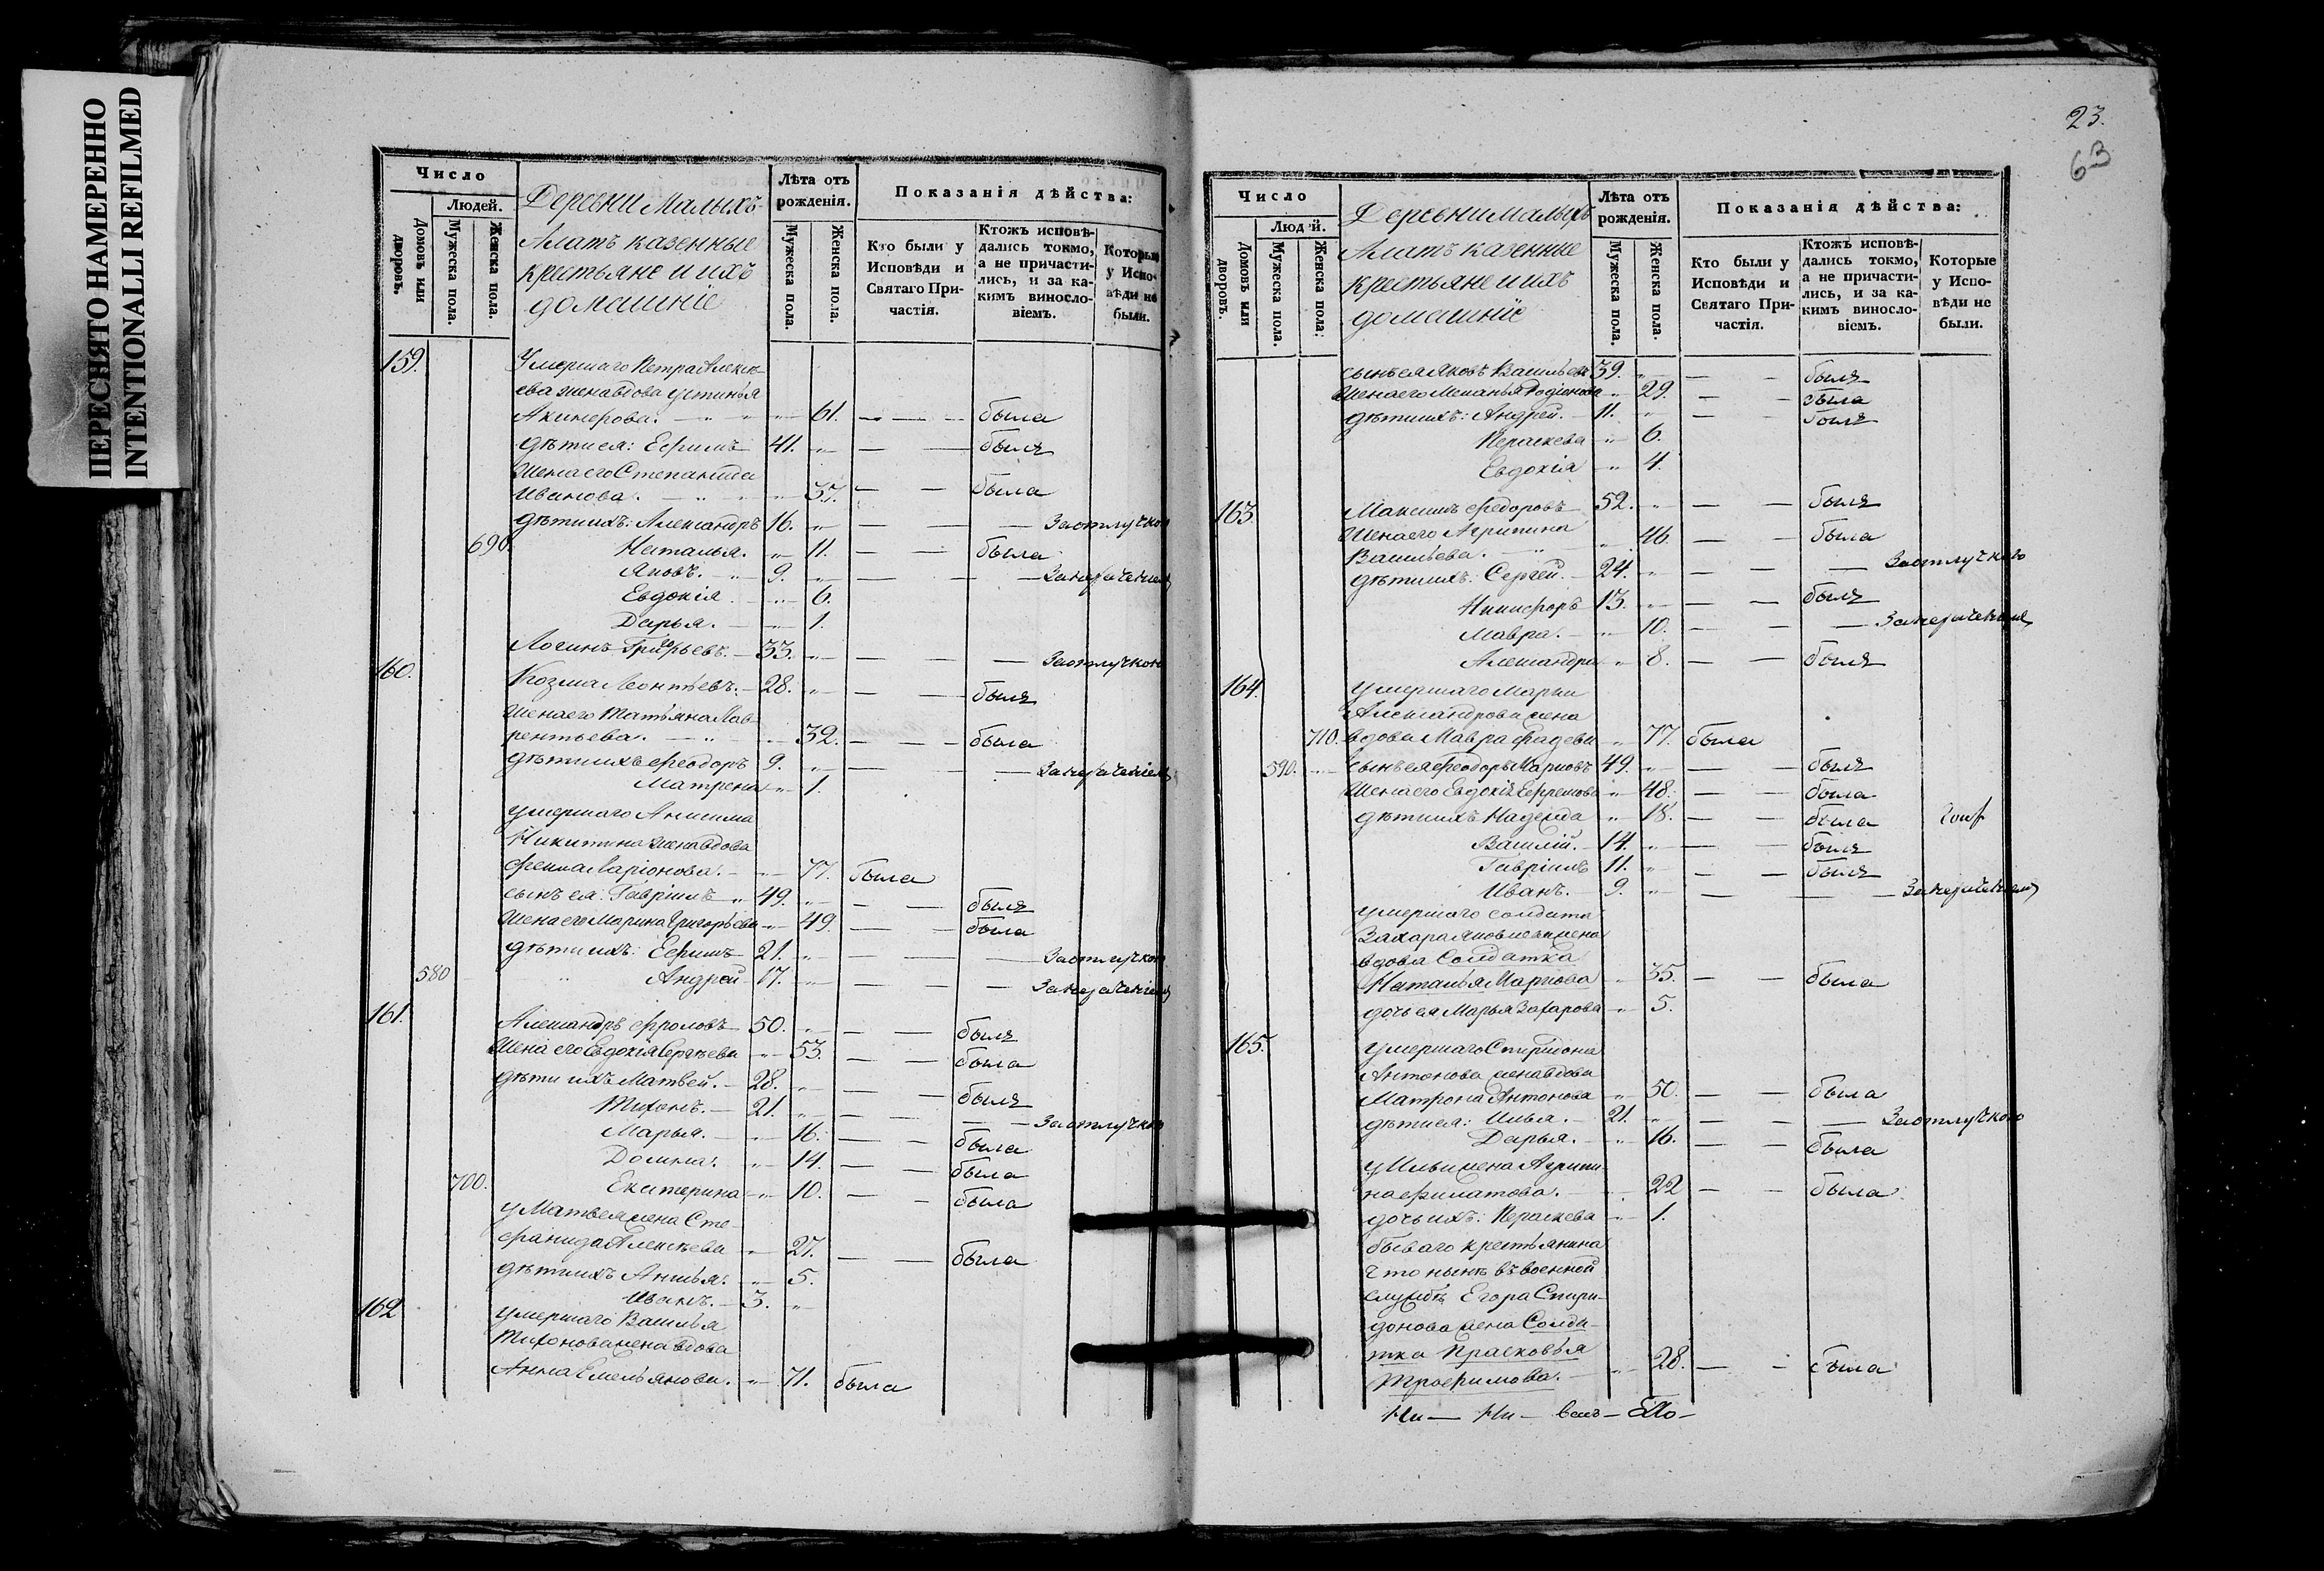 ПЕРЕСНЯТО НАМЕРЕННО
INTENTIONALLI REFILMED
Число
Людей.
Домовъ или дворовъ.
Мужеска пола.
Женска пола.
Деревни Малыхъ
Алатъ казенные
крестьяне и ихъ
домашніе
Лѣта отъ рожденія.
Мужеска пола.
Женска пола.
Показанія дѣйства:
Кто были у Исповѣди и Святаго Причастія.
Ктожъ исповѣдались токмо, а не причастились, и за какимъ винословіемъ.
Которые у Исповѣди не были.
159. Умершаго Петра Алексѣ-
ева жена вдова Устинья
61. была
дѣти ея: Ефимъ 41. былъ
Жена его Степанида
Иванова. 37. была
дѣти ихъ: Александръ 16. За отлучкою
690. Наталья. 11. была
Яковъ. 9. За нераченіемъ
Евдокія 6.
Дарья. 1.
Логинъ Григорьевъ. 33. За отлучкою
160. Козма Леонтьевъ. 28. былъ
Жена его Татьяна Лав-
рентьева. 32. была
дѣти ихъ Феодоръ 9. За нераченіемъ
Матрена 1.
умершаго Анисима
Никитина жена вдова
Фекла Ларіонова. 77. была
сынъ ея: Гавріилъ 49. былъ
Жена его Марина Григорьева 49. была
дѣти ихъ: Ефимъ 21. За отлучкою
580 Андрей 17. За нераченіемъ
161. Александръ Фроловъ 50. былъ
Жена его Евдокія Сергѣева 53. была
дѣти ихъ Матвей. 28. былъ
Тихонъ. 21. За отлучкою
Марья. 16. была
Домна. 14. была
700. Екатерина 10. была
у Матвея жена Сте-
фанида Алексѣева 27. была
дѣти ихъ Анисья. 5.
Иванъ. 3.
162 умершаго Василья
Тихонова жена вдова
Анна Емельянова. 71. была
23.
63
Число
Людей.
Домовъ или дворовъ.
Мужеска пола.
Женска пола.
Деревни Малыхъ
Алатъ казенные
крестьяне и ихъ
домашніе
Лѣта отъ рожденія.
Мужеска пола.
Женска пола.
Показанія дѣйства:
Кто были у Исповѣди и Святаго Причастія.
Ктожъ исповѣдались токмо, а не причастились, и за какимъ винословіемъ.
Которые у Исповѣди не были.
сынъ ея Яковъ Васильевъ 39. былъ
Жена его Меланья Родіонова 29. была
дѣти ихъ: Андрей. 11. былъ
Пераскева 6.
Евдокія 4.
163. Максимъ Федоровъ 52. былъ
Жена его Агрипина
Васильева. 46. была
дѣти ихъ: Сергей. 24. За отлучкою
Никифоръ 13. былъ
Мавра. 10. За нераченіемъ
Александра 8. былъ
164. умершаго Марки
Александрова жена
710. вдова Мавра Фадеева 77. была
590. сынъ ея Феодоръ Марковъ 49. былъ
Жена его Евдокія Ефремова 48. была
дѣти ихъ Надежда 18. была
Василій. 14. былъ
Гавріилъ 11. былъ
Иванъ. 9. За нераченіемъ
умершаго солдата
Захара Яковлева жена
вдова Солдатка
Наталья Маркова 35. была
дочь ея Марья Захарова 5.
165. умершаго Спиридона
Антонова жена вдова
Матрона Антонова 50. была
дѣти ея: Илья. 21. За отлучкою
Дарья. 16. была
у Ильи жена Агрипи-
на Филатова. 22 была
дочь ихъ: Пераскева 1.
бываго крестьянина
что нынѣ въ военной
службѣ Егора Спири-
донова жена Солда-
тка Прасковья
Трофимова. 28. была